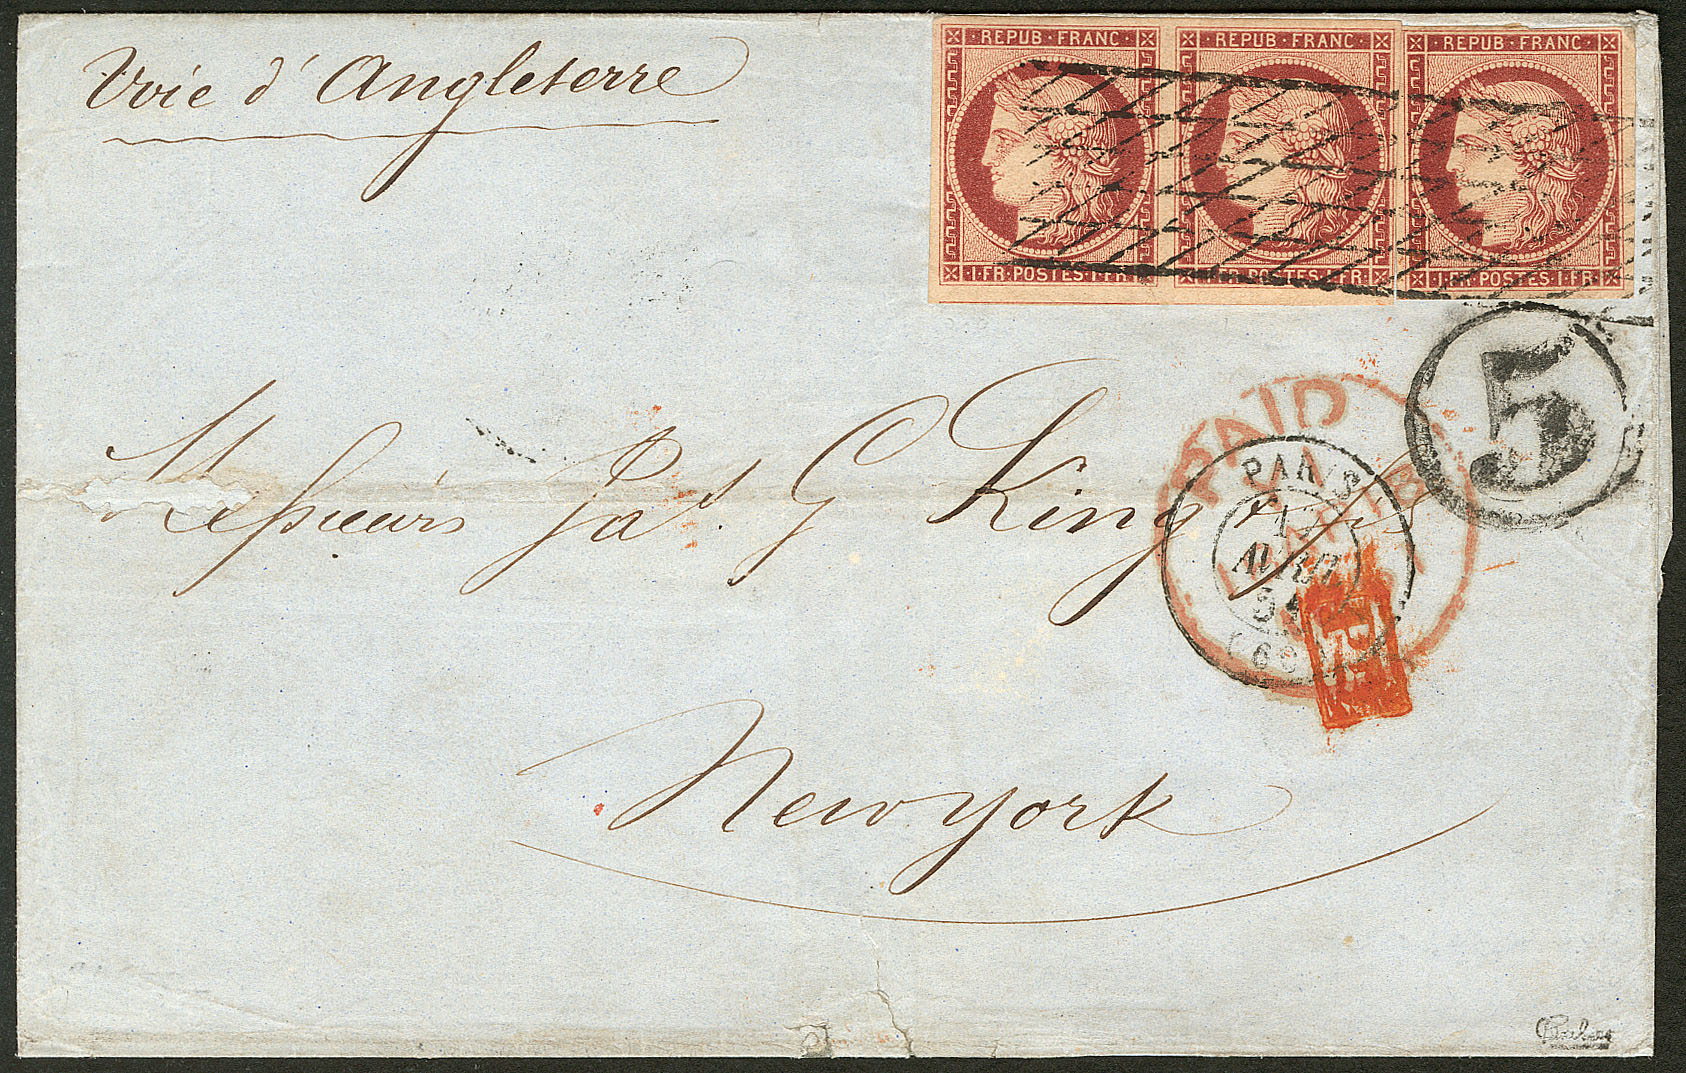 Voie d'Angleterre
REPUB · FRANC
1 · FR · POSTES · 1 · FR
REPUB · FRANC
1 · FR · POSTES · 1 · FR
REPUB · FRANC
1 · FR · POSTES · 1 · FR
5
PAID
PARIS
17
AVRIL
51
(60)
Messieurs Jas G King & Sons
New york